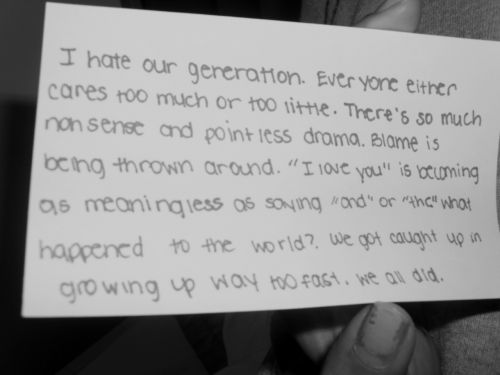 I hate our generation. Everyone either
cares too much or too little. There's so much
nonsense and pointless drama. Blame is
being thrown around. "I love you" is becoming
as meaningless as saying "and" or "the" what
happened to the world?. We got caught up in
growing up way too fast. We all did.